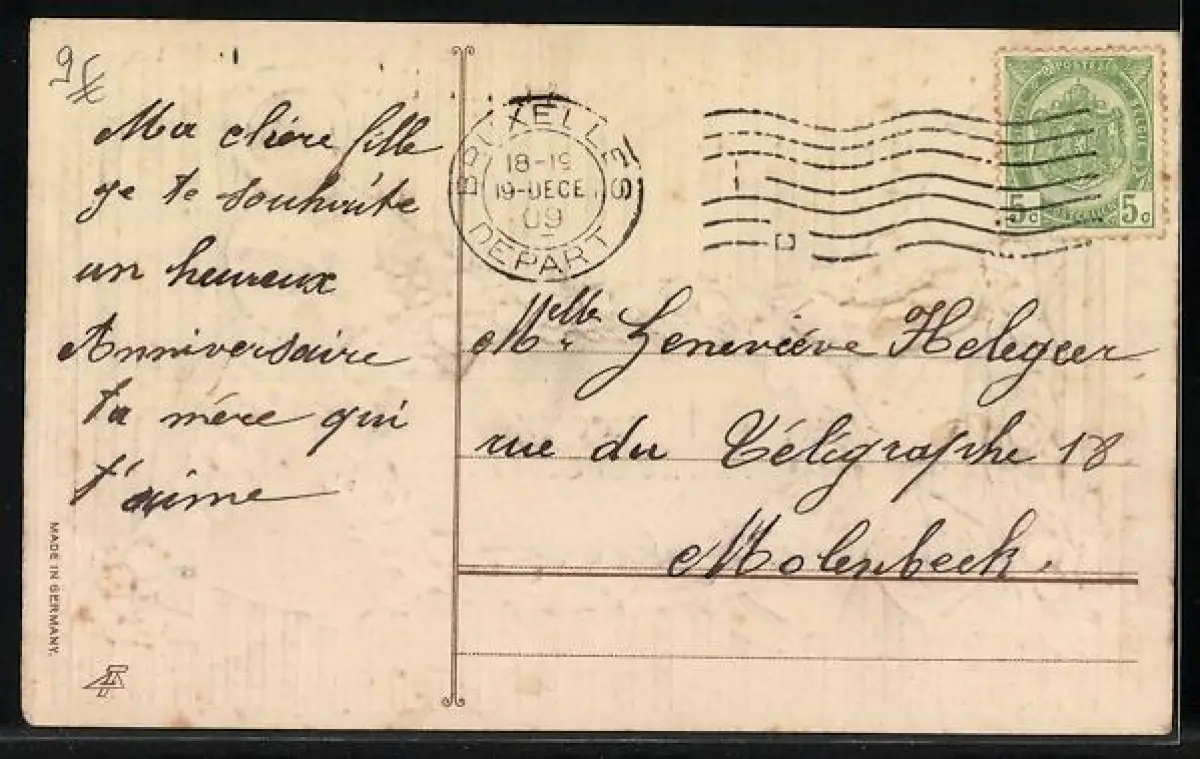 Ma chère fille
je te souhaite
un heureux
Anniversaire
ta mère qui
t'aime
MADE IN GERMANY.
BRUXELLES
18-19
19-DECE
09
DEPART
POSTES
BELGIE
5c 5c
Melle Geneviève Helegeer
rue du Télégraphe 18
Molenbeek.